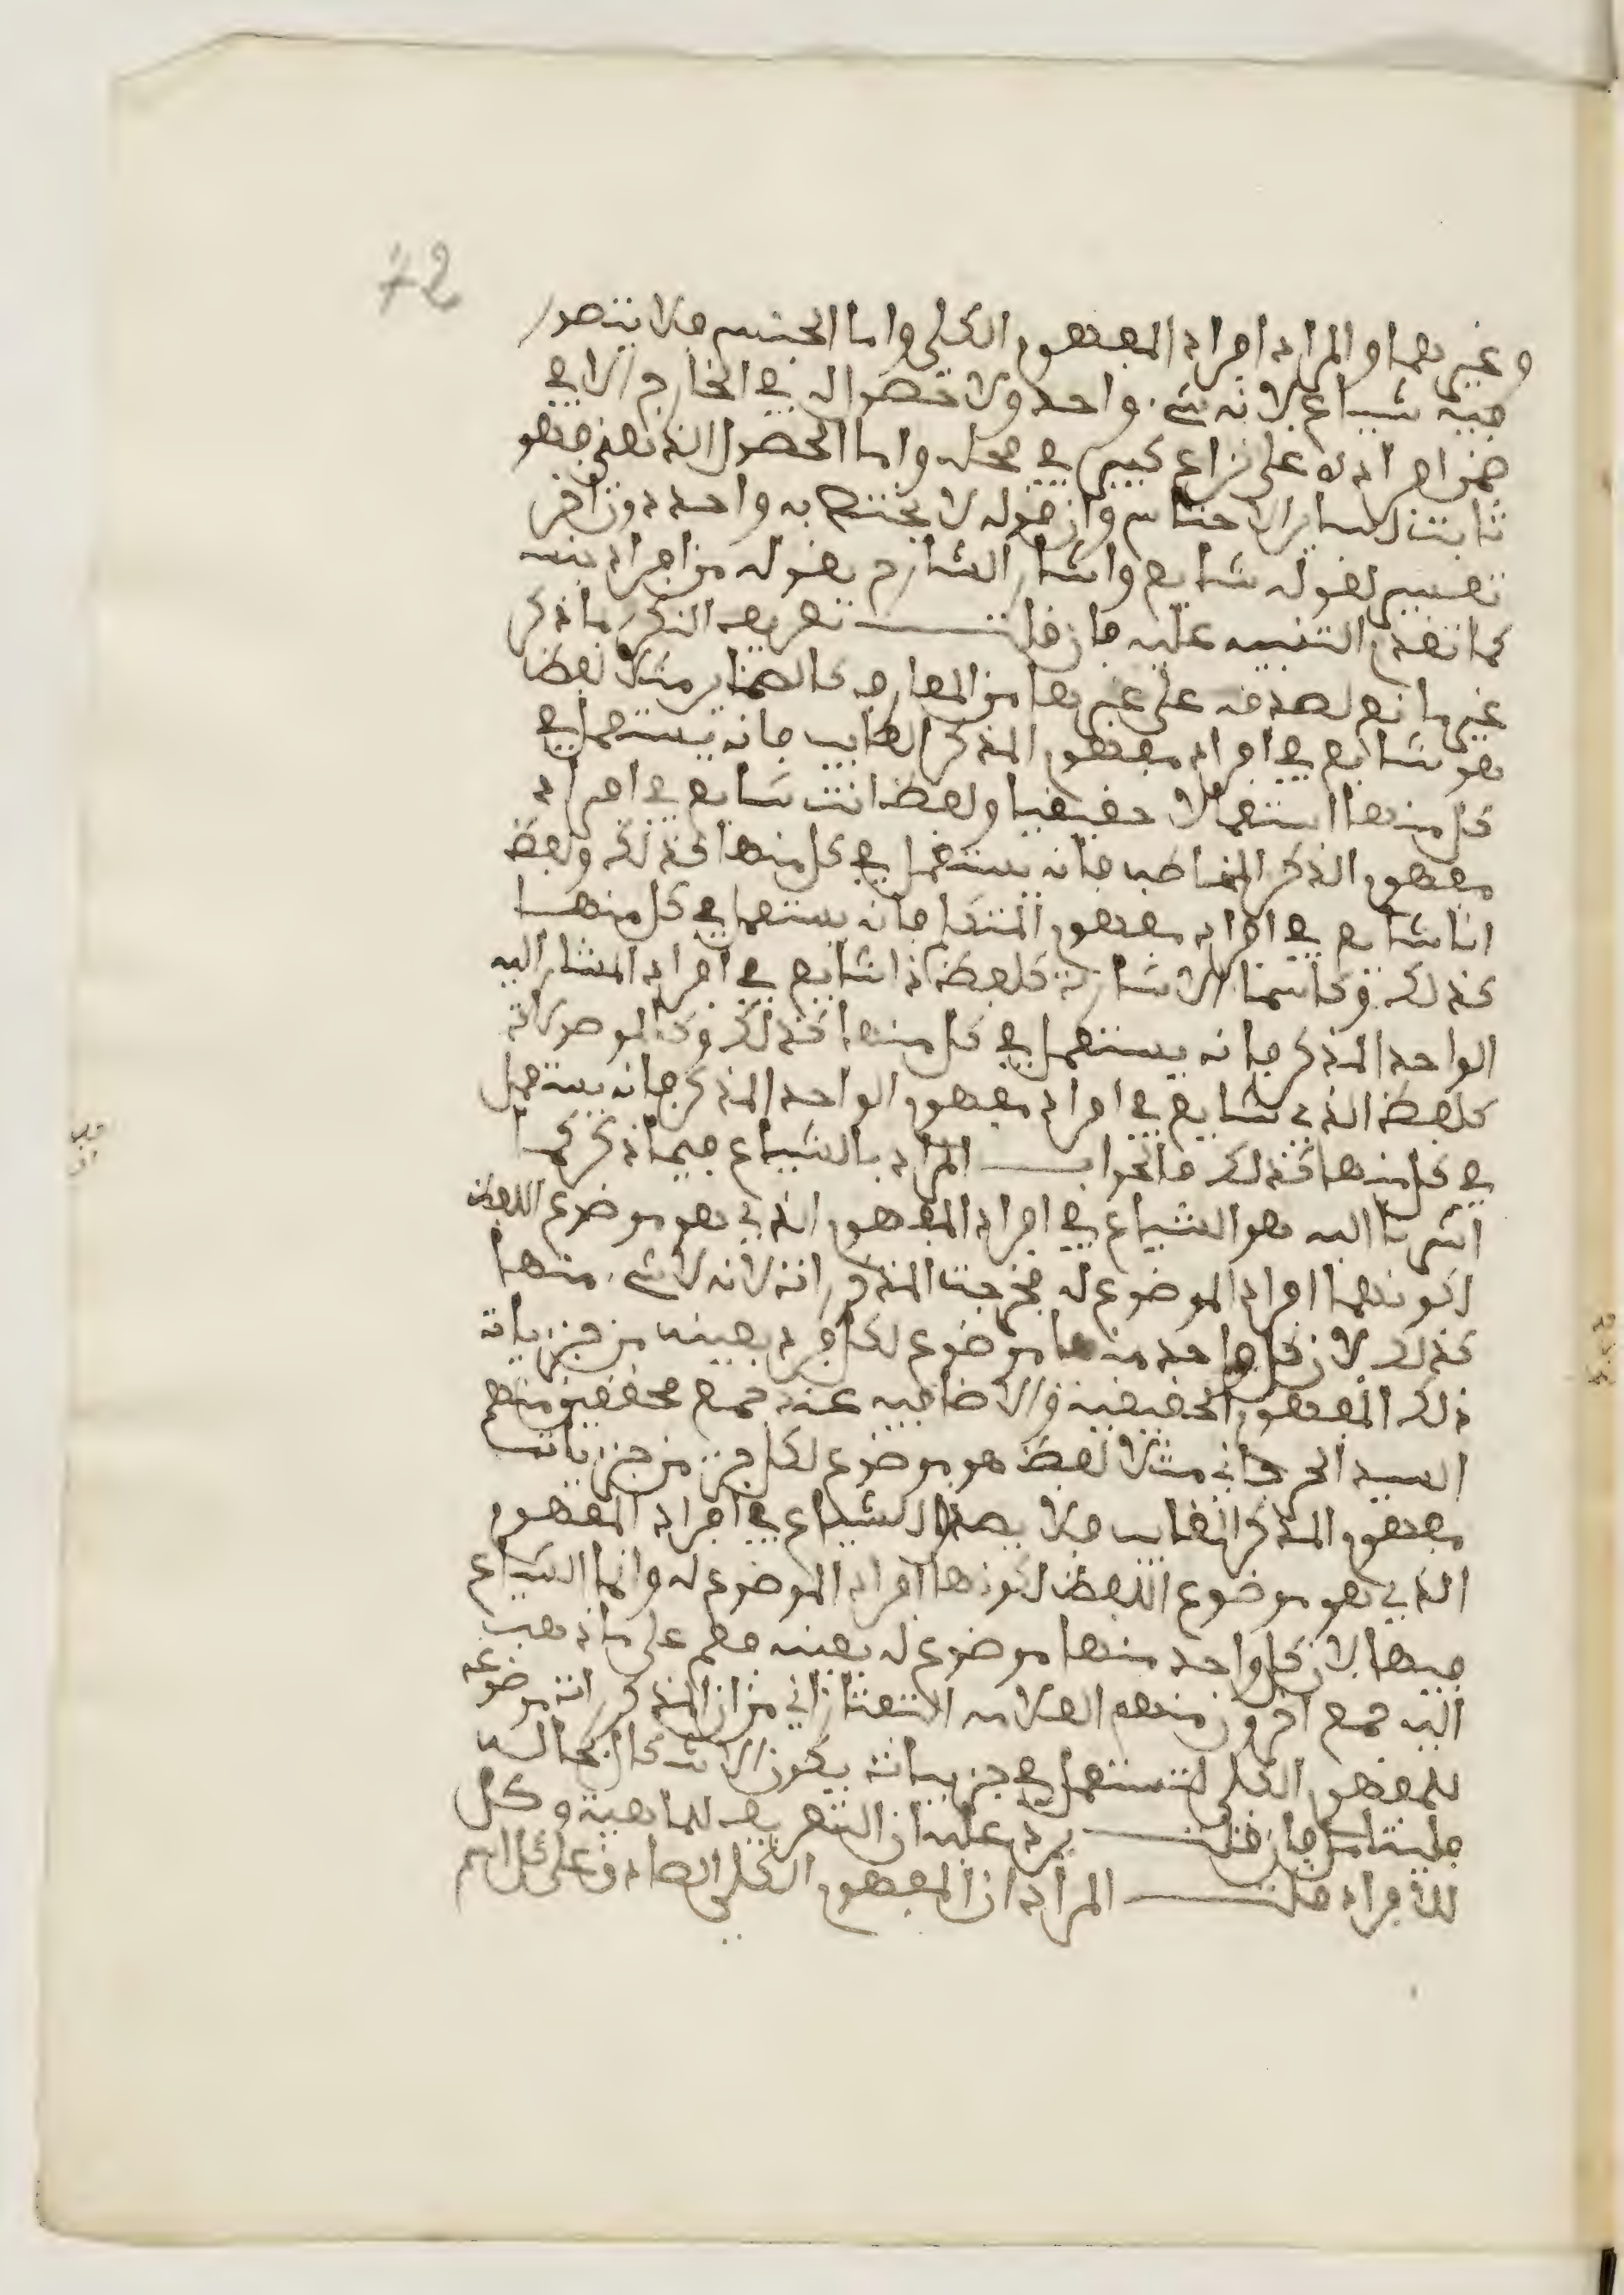 72
وغيرهما والمراد افراد المفهوم الكلي واما الجنس فلا يتصور
فيه شياع لانه شيء واحد ولا حصول له في الخارج الا في
ضمن افراده على نزاع كبير في محله واما الحصول الذهني فهو
ثابت لساير الاجناس وان قوله لا يختص به واحد دون اخر
تفسير لقوله شايع واشار الشارح بقوله من افراد جنسه
كما تقدم التنبيه عليه فان قلت تعريف النكرة بما ذكر
غير مانع لصدقه على غيرها من المعارف كالضماير مثلا لفظ
هو شايع في افراد مفهوم المذكر الغايب فانه يستعمل في
كل منها استعمالا حقيقيا ولفظ انت شايع في افراد
مفهوم المذكر المخاطب فانه يستعمل في كل منها كذلك ولفظ
انا شايع في افراد مفهوم المتكلم فانه يستعمل في كل منها
كذلك وكاسماء الاشارة كلفظ ذا شايع في افراد المشار اليه
الواحد المذكر فانه يستعمل في كل منها كذلك وكالموصولات
كلفظ الذي شايع في افراد مفهوم الواحد المذكر فانه يستعمل
في كل منها كذلك فالجواب المراد بالشياع فيما ذكر كما
اشرنا اليه هو الشياع في افراد المفهوم الذي هو موضوع اللفظ
لكونهما افراد الموضوع له فخرجت المذكورات لانه لا شيء منها
كذلك لان كل واحد منها موضوع لكل فرد بعينه من جزيات
ذلك المفهوم الحقيقية والاضافية عند جمع محققين منهم
السيد الجرجاني مثلا لفظ هو موضوع لكل جزء من جزيات
مفهوم المذكر الغايب فلا يصدق الشياع في افراد المفهوم
الذي هو موضوع اللفظ لكونها افراد الموضوع له وانما الشياع
فيها لان كل واحد منها موضوع له بعينه نعم على ما ذهب
اليه جمع اخرون منهم العلامة التفتازاني من ان المذكورات موضوعة
للمفهوم الكلي لتستعمل في جزياته يكون الاشكال بحاله
فليتامل فان قلت يرد عليه ان التعريف للماهية وكل
للافراد قلت المراد ان المفهوم الكلي الصادق على كل اسم